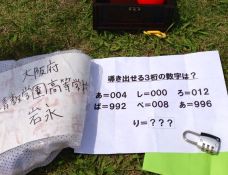 大阪府
学園高等学校
岩永
導き出せる3桁の数字は？
あ=004 し=000 ろ=012
ば=992 べ=008 あ=996
り=？？？